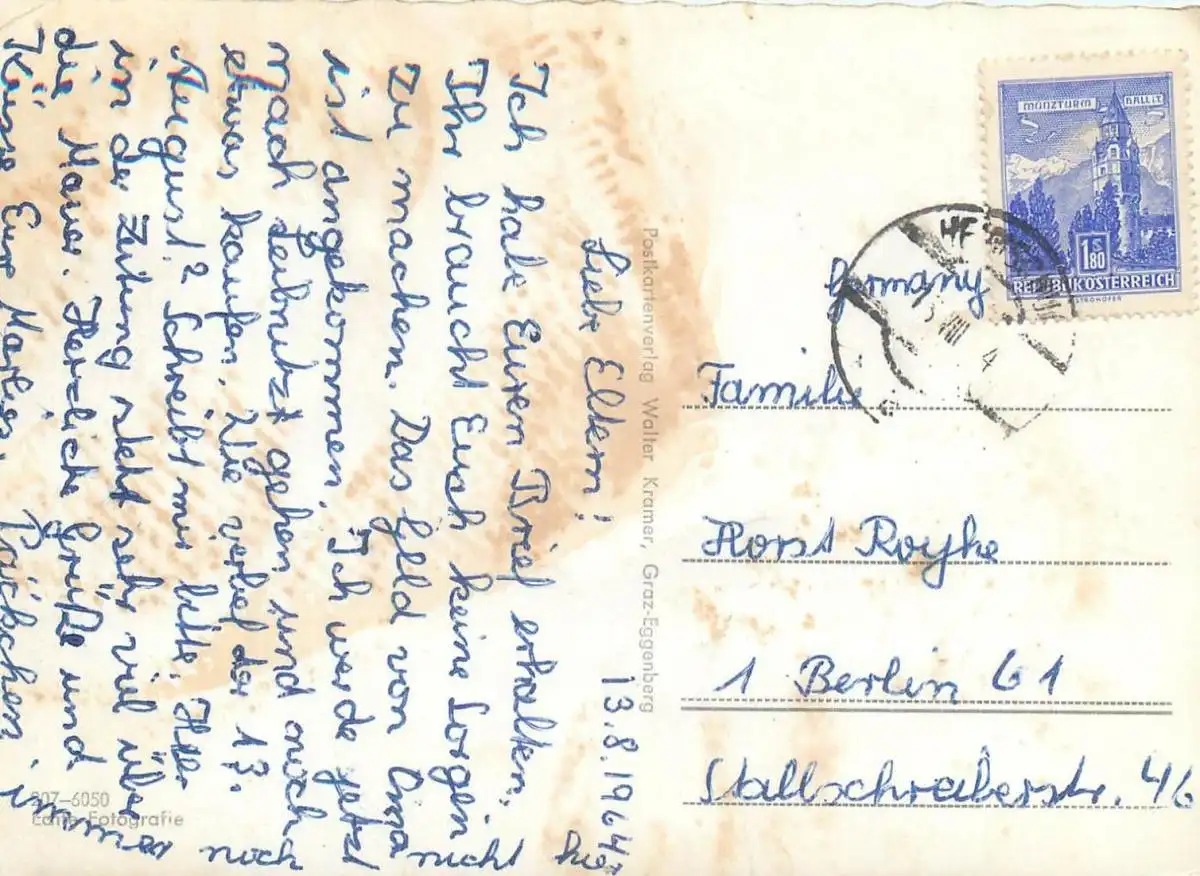 13.8.1964
Liebe Eltern!
Ich habe Euren Brief erhalten.
Ihr braucht Euch keine Sorgen
zu machen. Das Geld von Oma
ist angekommen. Ich werde jetzt
nach Leibnitz gehen und auch
etwas kaufen. Wie verlief der 13.
August? Schreibt mir bitte. Hier
in der Zeitung steht sehr viel über
die Mauer. Herzliche Grüße und
Küsse Eure Marlies. Päckchen immer noch nicht hier
207-6050
Echte Fotografie
Postkartenverlag Walter Kramer, Graz-Eggenberg
MÜNZTURM HALL i.T.
1S80
REPUBLIK ÖSTERREICH
STROHOFER
Germany
Familie
Horst Roylke
1 Berlin 61
Stallschreiberstr. 46